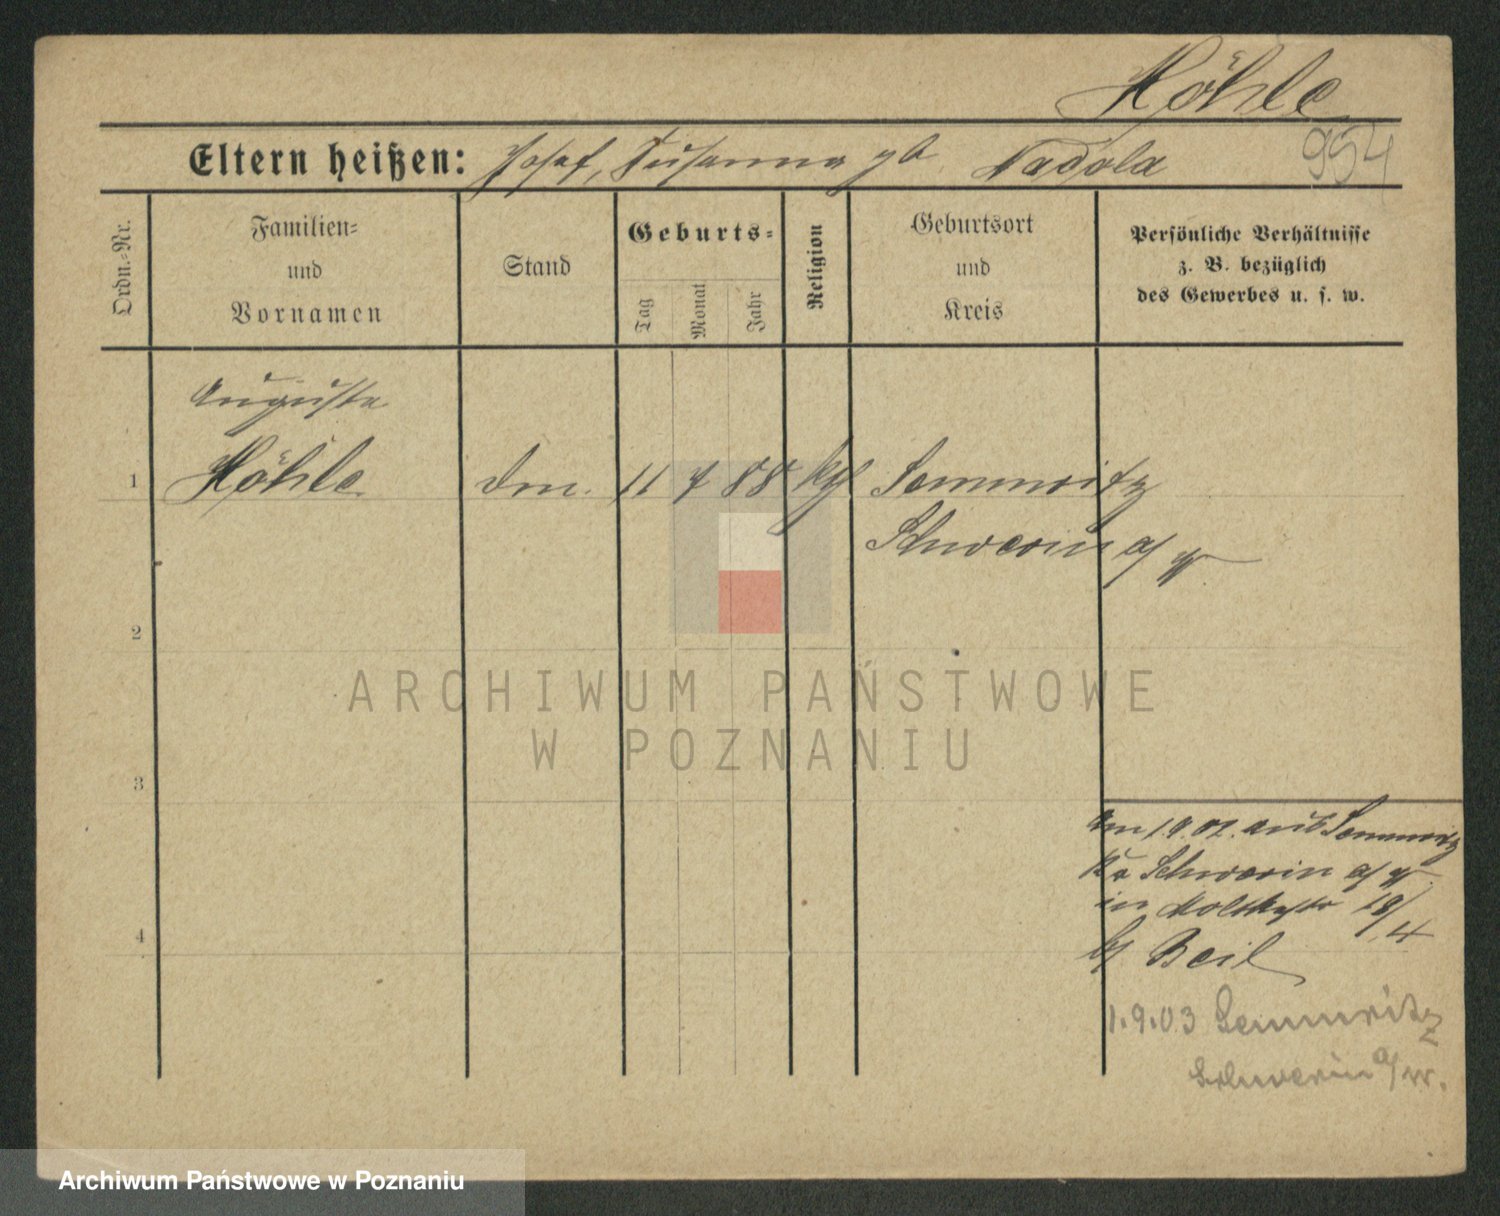 Höhle
954
Eltern heißen: Josef, Susanna gb Nadola
Ordn.-Nr.
Familien-
und
Vornamen
Stand
Geburts-
Tag
Monat
Jahr
Religion
Geburtsort
und
Kreis
Persönliche Verhältnisse
z. B. bezüglich
des Gewerbes u. s. w.
Auguste
1 Höhle 11 7 88 kth Semmritz
Schwerin a/W
2
3
4
ARCHIWUM PAŃSTWOWE
W POZNANIU
aus Semmritz
Kr Schwerin a/W.
in Moltkestr 18/4
by Beil
1.9.03 Semmritz
Schwerin a/W.
Archiwum Państwowe w Poznaniu